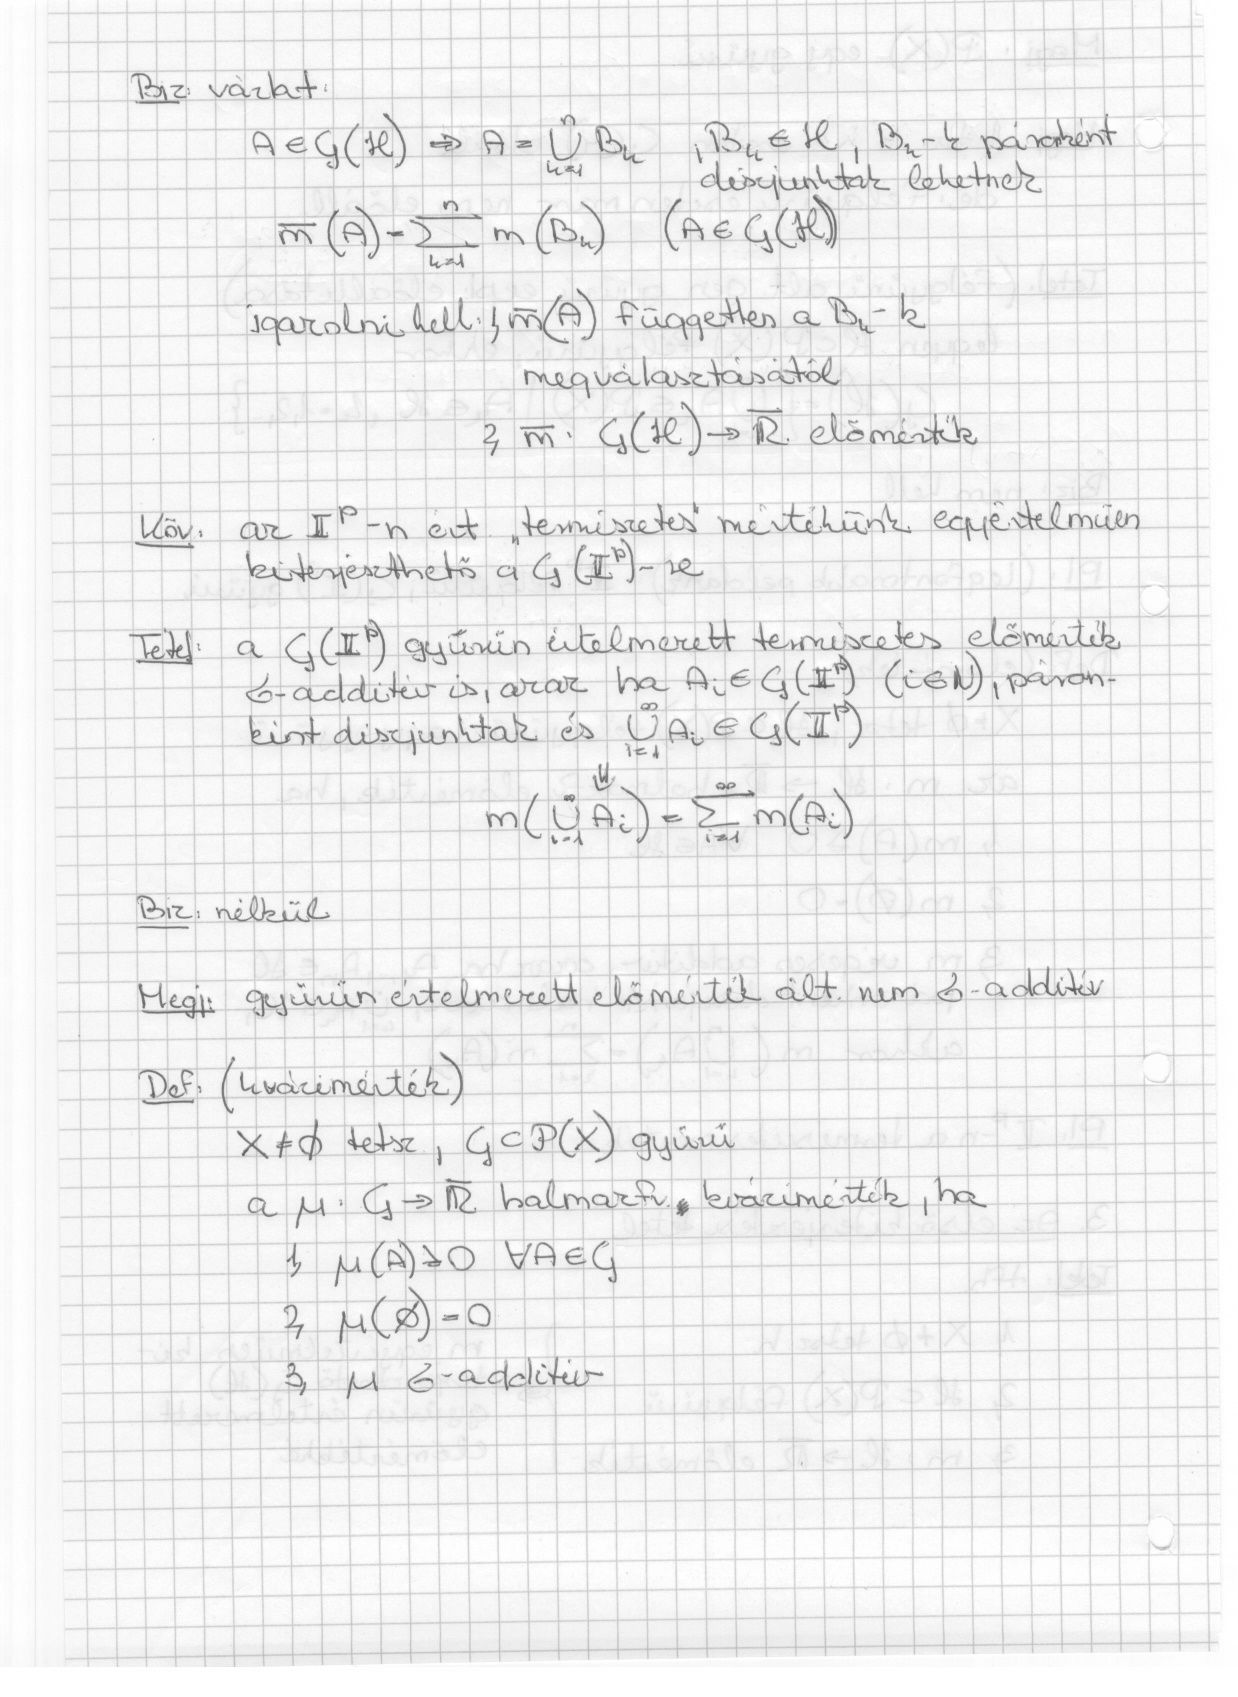 Biz: vázlat:
A ∈ G(ℋ) ⇒ A = ⋃_{k=1}^{n} B_k , B_k ∈ ℋ , B_k-k páronként
diszjunktak lehetnek
m̄(A) = ∑_{k=1}^{n} m(B_k) (A ∈ G(ℋ))
igazolni kell: 1, m̄(A) független a B_k-k
megválasztásától
2, m̄: G(ℋ) → ℝ̄ előmérték
Köv: az 𝕀^p-n ért. „természetes" mértékünk egyértelműen
kiterjeszthető a G(𝕀^p)-re
Tétel: a G(𝕀^p) gyűrűn értelmezett természetes előmérték
σ-additív is, azaz ha A_i ∈ G(𝕀^p) (i∈ℕ), páron-
ként diszjunktak és ⋃_{i=1}^{∞} A_i ∈ G(𝕀^p)
⇓
m(⋃_{i=1}^{∞} A_i) = ∑_{i=1}^{∞} m(A_i)
Biz: nélkül
Megj: gyűrűn értelmezett előmérték ált. nem σ-additív
Def: (kvázimérték)
X ≠ ∅ tetsz, G ⊂ P(X) gyűrű
a μ: G → ℝ̄ halmazfv. kvázimérték, ha
1, μ(A) ≥ 0 ∀A∈G
2, μ(∅) = 0
3, μ σ-additív